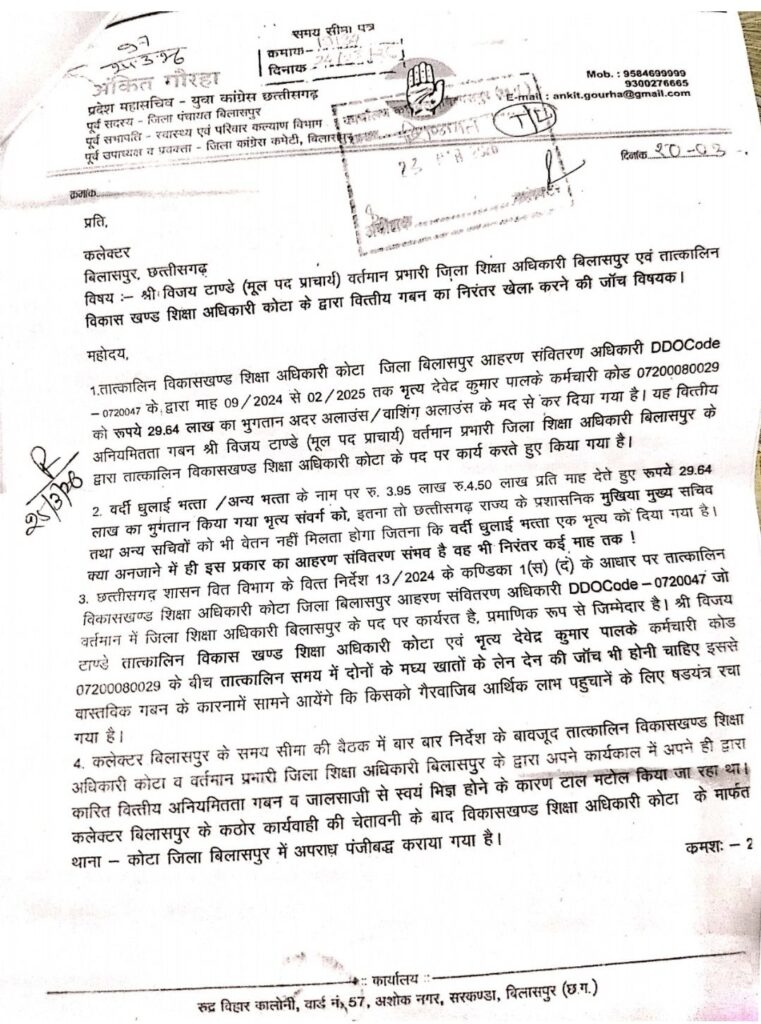 97
25.3.26
समय सीमा पत्र
क्रमांक
दिनांक
अंकित गौरहा
प्रदेश महासचिव - युवा कांग्रेस छत्तीसगढ़
पूर्व सदस्य - जिला पंचायत बिलासपुर
पूर्व सभापति - स्वास्थ्य एवं परिवार कल्याण विभाग
पूर्व उपाध्यक्ष व प्रवक्ता - जिला कांग्रेस कमेटी, बिलासपुर
Mob. : 9584699999
9300276665
E-mail : ankit.gourha@gmail.com
क्रमांक
दिनांक 20-03
23
प्रति,
कलेक्टर
बिलासपुर, छत्तीसगढ़
विषय :– श्री विजय टाण्डे (मूल पद प्राचार्य) वर्तमान प्रभारी जिला शिक्षा अधिकारी बिलासपुर एवं तात्कालिन
विकास खण्ड शिक्षा अधिकारी कोटा के द्वारा वित्तीय गबन का निरंतर खेला करने की जॉच विषयक।
महोदय,
1.तात्कालिन विकासखण्ड शिक्षा अधिकारी कोटा जिला बिलासपुर आहरण संवितरण अधिकारी DDOCode
–0720047 के द्वारा माह 09/2024 से 02/2025 तक भृत्य देवेद्र कुमार पालके कर्मचारी कोड 07200080029
को रूपये 29.64 लाख का भुगतान अदर अलाउंस/वाशिंग अलाउंस के मद से कर दिया गया है। यह वित्तीय
अनियमितता गबन श्री विजय टाण्डे (मूल पद प्राचार्य) वर्तमान प्रभारी जिला शिक्षा अधिकारी बिलासपुर के
द्वारा तात्कालिन विकासखण्ड शिक्षा अधिकारी कोटा के पद पर कार्य करते हुए किया गया है।
25/3/26
2. वर्दी धुलाई भत्ता /अन्य भत्ता के नाम पर रु. 3.95 लाख रु.4.50 लाख प्रति माह देते हुए रूपये 29.64
लाख का भुगतान किया गया भृत्य संवर्ग को, इतना तो छत्तीसगढ़ राज्य के प्रशासनिक मुखिया मुख्य सचिव
तथा अन्य सचिवों को भी वेतन नहीं मिलता होगा जितना कि वर्दी धुलाई भत्ता एक भृत्य को दिया गया है।
क्या अनजाने में ही इस प्रकार का आहरण संवितरण संभव है वह भी निरंतर कई माह तक !
3. छत्तीसगढ़ शासन वित विभाग के वित्त निर्देश 13/2024 के कण्डिका 1(स) (द) के आधार पर तात्कालिन
विकासखण्ड शिक्षा अधिकारी कोटा जिला बिलासपुर आहरण संवितरण अधिकारी DDOCode–0720047 जो
वर्तमान में जिला शिक्षा अधिकारी बिलासपुर के पद पर कार्यरत है, प्रमाणिक रूप से जिम्मेदार है। श्री विजय
टाण्डे तात्कालिन विकास खण्ड शिक्षा अधिकारी कोटा एवं भृत्य देवेद्र कुमार पालके कर्मचारी कोड
07200080029 के बीच तात्कालिन समय में दोनों के मध्य खातों के लेन देन की जॉच भी होनी चाहिए इससे
वास्तविक गबन के कारनामें सामने आयेंगे कि किसको गैरवाजिब आर्थिक लाभ पहुचानें के लिए षडयंत्र रचा
गया है।
4. कलेक्टर बिलासपुर के समय सीमा की बैठक में बार बार निर्देश के बावजूद तात्कालिन विकासखण्ड शिक्षा
अधिकारी कोटा व वर्तमान प्रभारी जिला शिक्षा अधिकारी बिलासपुर के द्वारा अपने कार्यकाल में अपने ही द्वारा
कारित वित्तीय अनियमितता गबन व जालसाजी से स्वयं भिज्ञ होने के कारण टाल मटोल किया जा रहा था।
कलेक्टर बिलासपुर के कठोर कार्यवाही की चेतावनी के बाद विकासखण्ड शिक्षा अधिकारी कोटा के मार्फत
थाना – कोटा जिला बिलासपुर में अपराध पंजीबद्ध कराया गया है।
कमशः – 2
:: कार्यालय ::
रुद्र विहार कालोनी, वार्ड नं. 57, अशोक नगर, सरकण्डा, बिलासपुर (छ.ग.)